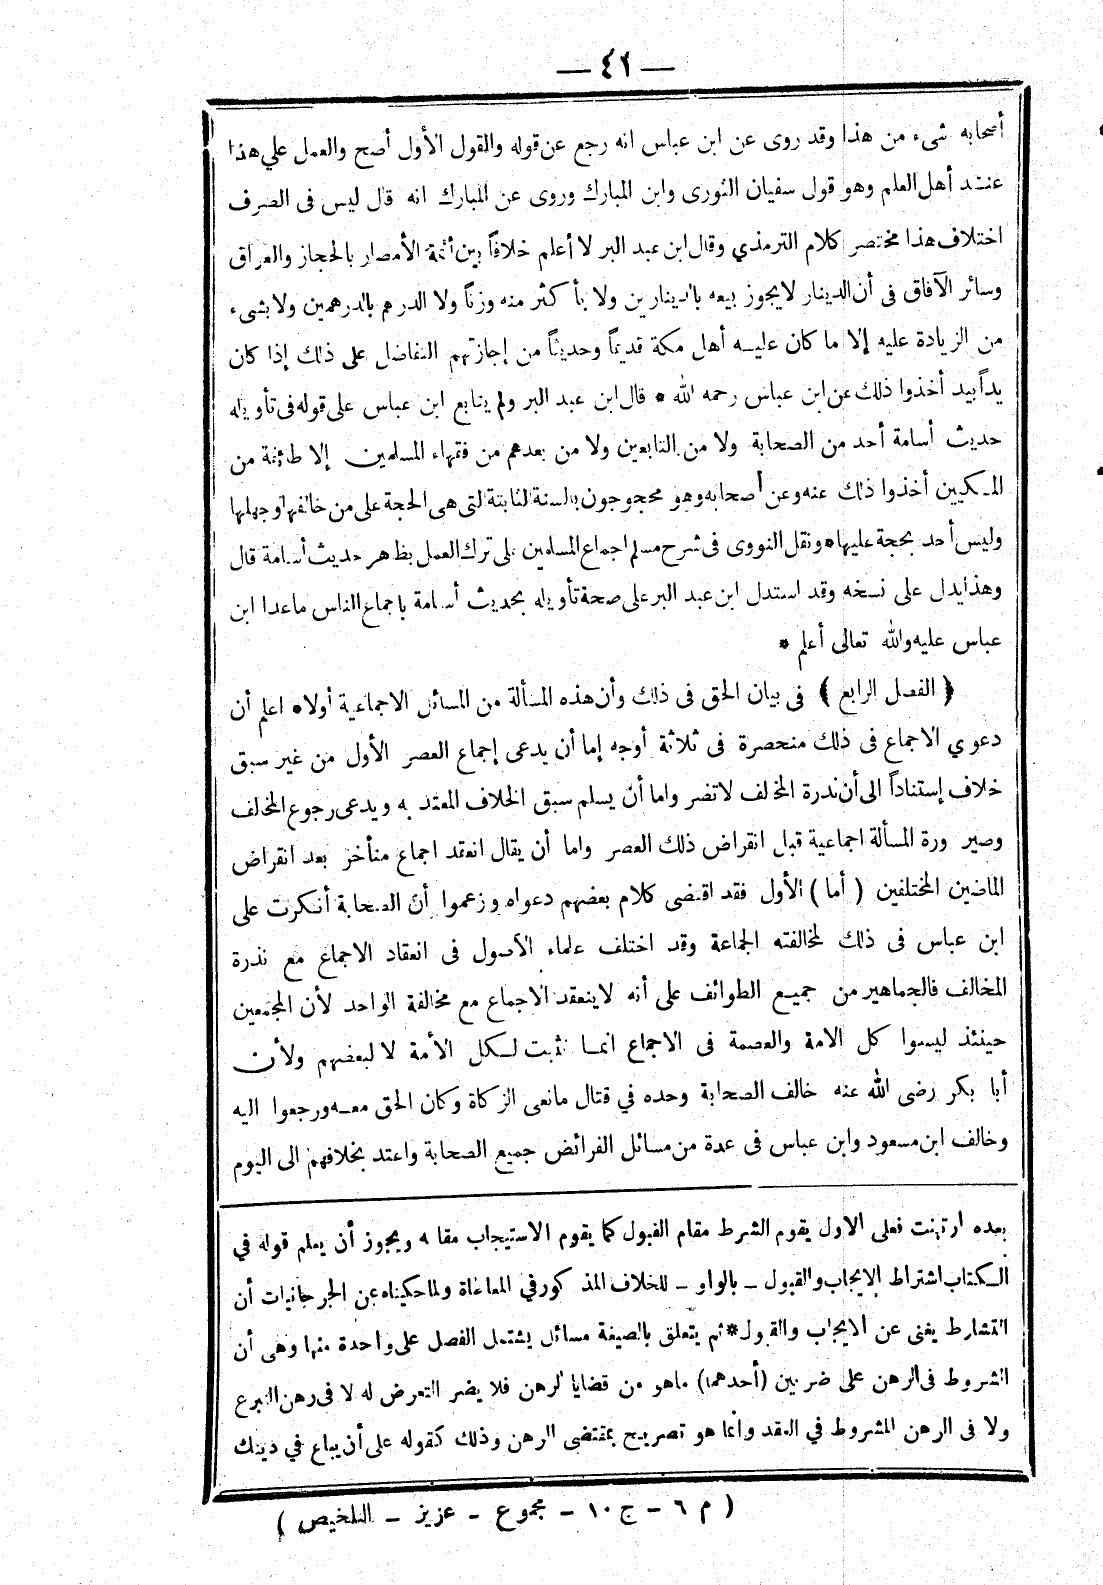 — ٤١ —
أصحابه شىء من هذا وقد روى عن ابن عباس انه رجع عن قوله والقول الأول أصح والعمل علي هذا
عند أهل العلم وهو قول سفيان الثورى وابن المبارك وروى عن المبارك انه قال ليس فى الصرف
اختلاف هذا مختصر كلام الترمذي وقال ابن عبد البر لا أعلم خلافاً بين أئمة الأمصار بالحجاز والعراق
وسائر الآفاق فى أن الدينار لا يجوز بيعه بالدينارين ولا بأكثر منه وزناً ولا الدرهم بالدرهمين ولا بشىء
من الزيادة عليه إلا ما كان عليه أهل مكة قديماً وحديثاً من إجازتهم التفاضل على ذلك إذا كان
يداً بيد أخذوا ذلك عن ابن عباس رحمه الله * قال ابن عبد البر ولم يتابع ابن عباس على قوله فى تأويله
حديث أسامة أحد من الصحابة ولا من التابعين ولا من بعدهم من فقهاء المسلمين إلا طائفة من
المكيين أخذوا ذلك عنه وعن أصحابه وهو محجوجون بالسنة الثابتة التى هى الحجة على من خالفها وجهلها
وليس أحد بحجة عليها * ونقل النووى فى شرح مسلم اجماع المسلمين على ترك العمل بظاهر حديث أسامة قال
وهذا يدل على نسخه وقد استدل ابن عبد البر على صحة تأويله بحديث أسامة باجماع الناس ما عدا ابن
عباس عليه والله تعالى أعلم *
﴿ الفصل الرابع ﴾ فى بيان الحق فى ذلك وأن هذه المسألة من المسائل الاجماعية أولا * اعلم أن
دعوي الاجماع فى ذلك منحصرة فى ثلاثة أوجه إما أن يدعى إجماع العصر الأول من غير سبق
خلاف إستناداً الى أن ندرة المخالف لا تضر واما أن يسلم سبق الخلاف المعتد به ويدعى رجوع المخالف
وصيرورة المسألة اجماعية قبل انقراض ذلك العصر واما أن يقال انعقد اجماع متأخر بعد انقراض
الماضين المختلفين ( أما ) الأول فقد اقتضى كلام بعضهم دعواه وزعموا أن الصحابة أنكرت على
ابن عباس فى ذلك لمخالفته الجماعة وقد اختلف علماء الأصول فى انعقاد الاجماع مع ندرة
المخالف فالجماهير من جميع الطوائف على أنه لا ينعقد الاجماع مع مخالفة الواحد لأن المجمعين
حينئذ ليسوا كل الامة والعصمة فى الاجماع انما تثبت لكل الأمة لا لبعضهم ولأن
أبا بكر رضى الله عنه خالف الصحابة وحده في قتال مانعى الزكاة وكان الحق معه ورجعوا اليه
وخالف ابن مسعود وابن عباس فى عدة من مسائل الفرائض جميع الصحابة واعتد بخلافهم الى اليوم
بعده ارتهنت فعلى الاول يقوم الشرط مقام القبول كما يقوم الاستيجاب مقامه ويجوز أن يعلم قوله في
الكتاب اشتراط الايجاب والقبول - بالواو - للخلاف المذكور في المعاطاة ولما حكيناه عن الجرجانيات أن
التشارط يغنى عن الايجاب والقبول * ثم يتعلق بالصيغة مسائل يشتمل الفصل على واحدة منها وهى أن
الشروط فى الرهن على ضربين (أحدهما) ماهو من قضايا الرهن فلا يضر التعرض له لا فى رهن التبرع
ولا فى الرهن المشروط في العقد وانما هو تصريح بمقتضى الرهن وذلك كقوله على أن يباع في دينك
( م ٦ - ج ١٠ - مجموع - عزيز - التلخيص )